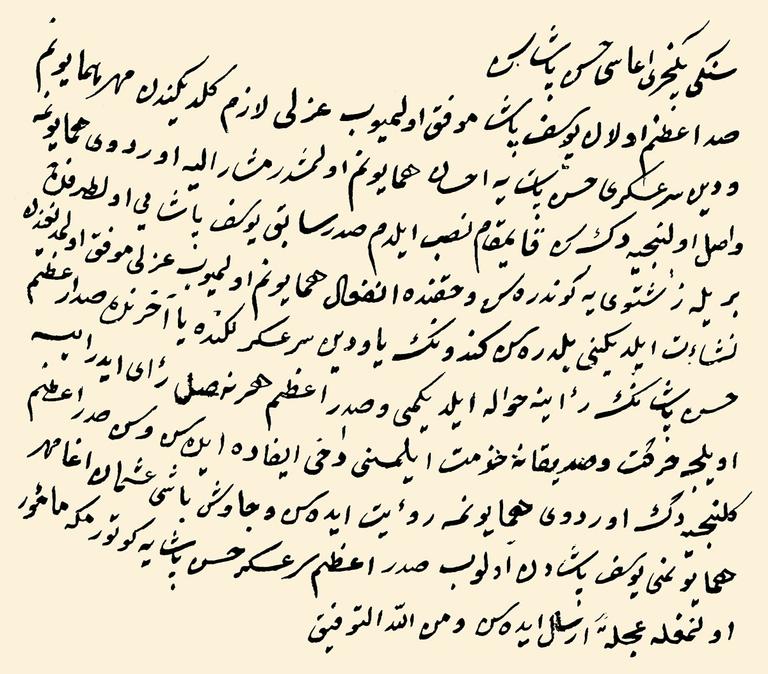 سنكه یكیچری اغاسی حسن پاشا سن
صدر اعظم اولان یوسف پاشا موفق اولمیوب عزلی لازم كلدیكندن مهر همایونم
ودین سرعسكری حسن پاشایه احسان همایونم اولمشدر مشار الیه اوردوی همایونمه
واصل اولنجیه دك سن قائمقام نصب ایلدم صدر سابق یوسف پاشایی اول طرفدن
بریله زشتوی یه كوندره سن وحقنده انفعال همایونم اولمیوب عزلی موفق اولمدیغندن
نشأت ایلدیكینی بلدره سن كندونك یا ودین سرعسكرلكنده یا آخرنده صدر اعظم
حسن پاشانك رأینه حواله ایلدیكمی وصدر اعظم هر نه اصل رأی ایدر ایسه
اویلجه حركت وصدیقانه خدمت ایلمسنی دخی افاده ایله سن وسن صدر اعظم
كلنجیه دك اوردوی همایونمه رؤیت ایده سن وچاوش باشی عثمان اغا مهر
همایونمی یوسف پاشادن الوب صدر اعظم سرعسكر حسن پاشایه كوتورمكه مأمور
اولنمغله عجلةً ارسال ایده سن ومن الله التوفیق